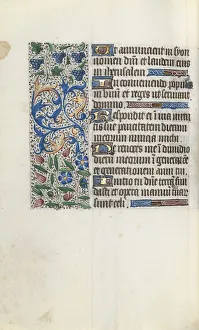 Ut annuncient in syon
nomen dñi et laudem eius
in iherusalem
In conveniendo populos
in unum et reges ut serviant
domino
Respondit ei in via
tis sue paucitatem dierum
meorum nuncia michi
Ne revoces me in dimidio
dierum meorum in generacõe
et generationem anni tui
Initio tu dñe terram fun
dasti et opera manuum tuar
sunt celi